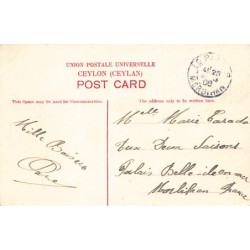 UNION POSTALE UNIVERSELLE
CEYLON (CEYLAN)
POST CARD
This Space may be used for Communication.
The address only to be written here.
Mille Baisers
Melle Marie
Aux Deux Saisons
Palais Belle-Ile-en-mer
Morbihan France